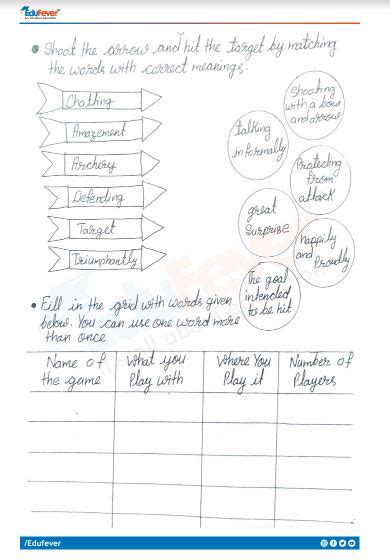 EduFever
Shoot the arrow and hit the target by matching
the words with correct meanings.
Chatting
Amazement
Archery
Defending
Target
Triumphantly
Shooting
with a bow
and arrow
talking
informally
Protecting
from
attack
great
Surprise
happily
and
Proudly
The goal
intended
to be hit
Fill in the grid with words given
below. You can use one word more
than once
Name of
the game
What you
Play with
Where You
Play it
Number of
Players
/Edufever